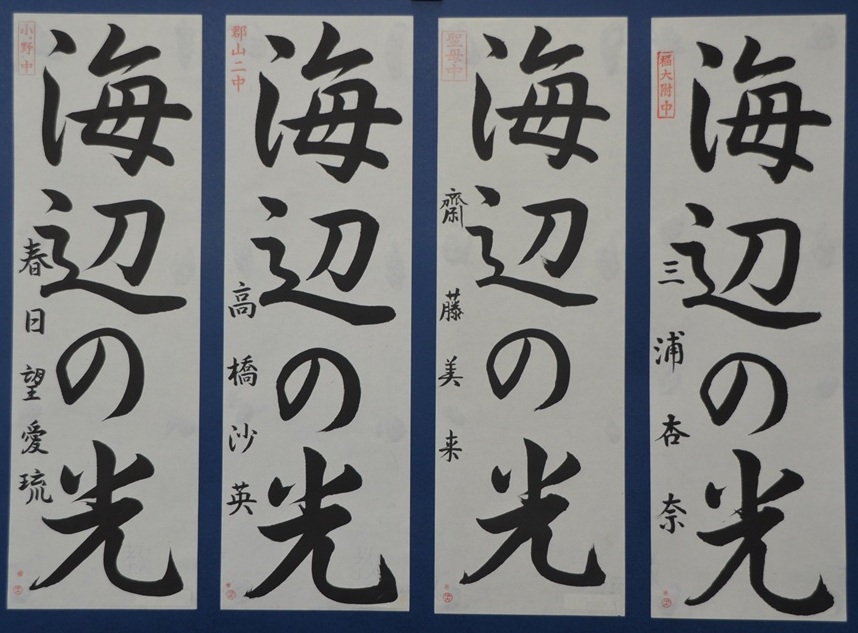 海辺の光
福大附中
三浦杏奈
海辺の光
聖母中
齋藤美来
海辺の光
郡山二中
高橋沙英
海辺の光
小野中
春日望愛琉